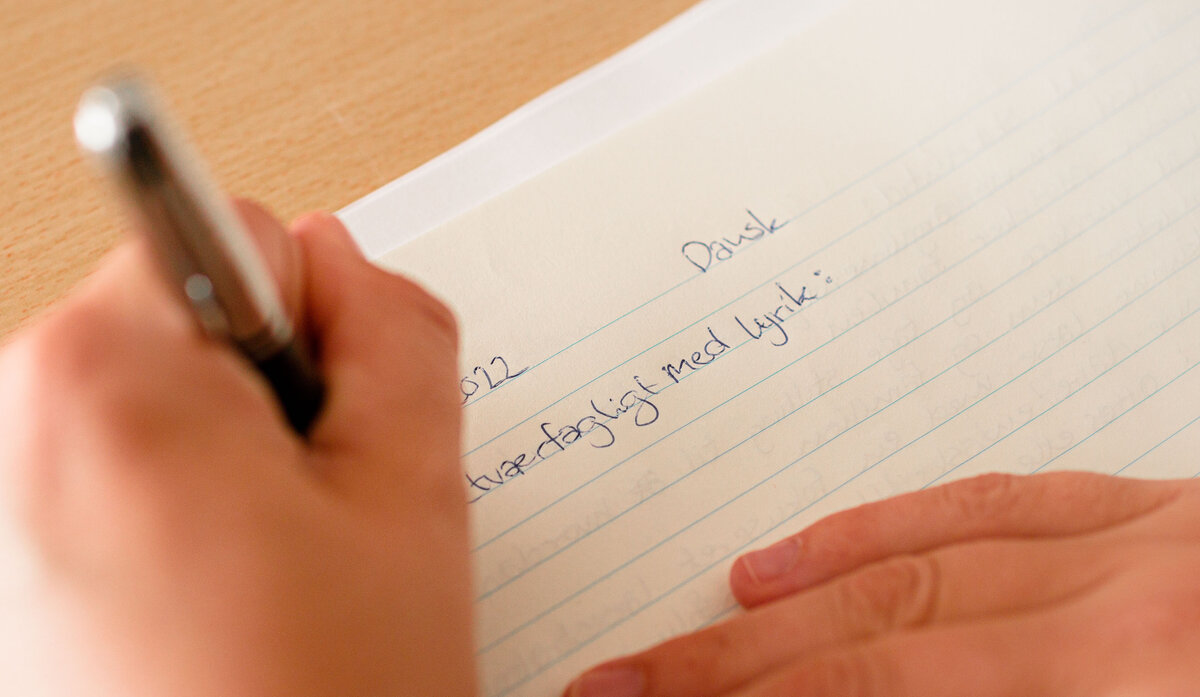 Dansk
2022
tværfagligt med lyrik: